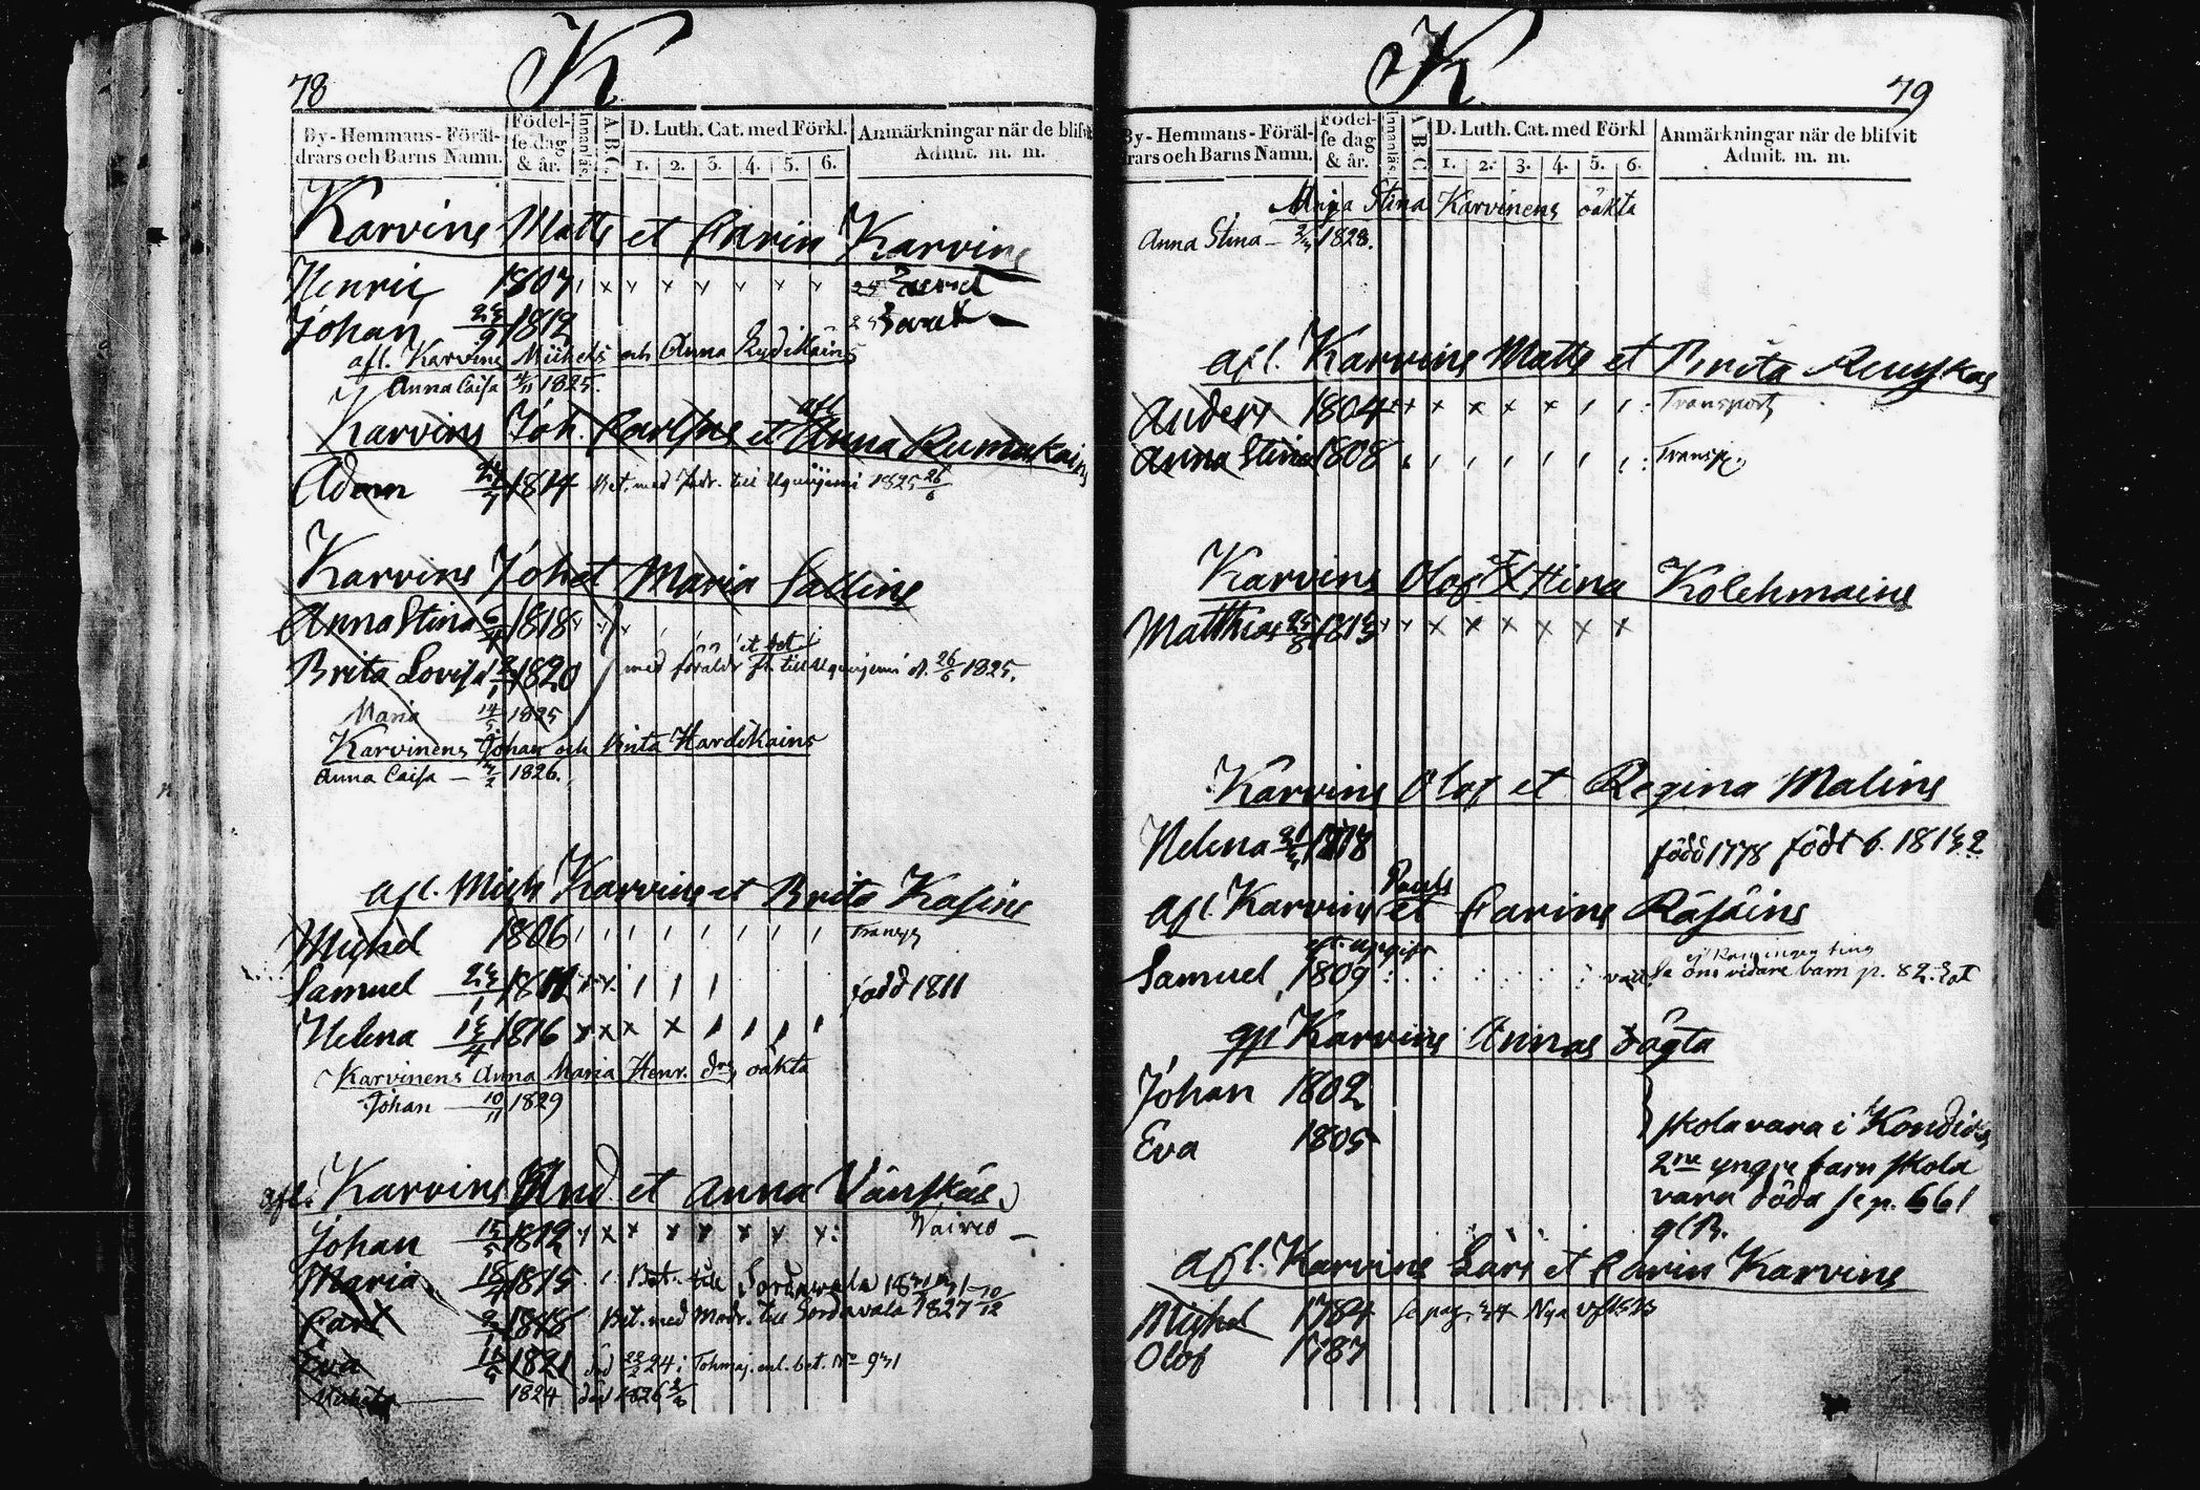 78
K
By-Hemmans-Föräl-
drars och Barns Namn.
Födel-
se dag
& år.
Innanläs.
A B C.
D. Luth. Cat. med Förkl.
1. 2. 3. 4. 5. 6.
Anmärkningar när de blifvit
Admit. m. m.
Karvins Matts et Carin Karvins
Henric 1807 x x x x x x x
Johan 1812
afl. Karvins Michels och Anna Rydikäins
Anna Caisa 4/11 1825.
Karvins Joh. Carlsons et afl. Anna Rumukains
Adam 1814 Bet. med Födr. till Uguniemi 1825 26/6
Karvins Joh et Maria Sallins
Anna Stina 1818
Brita Lovisa 1820 med föräldr till Uguniemi d. 26/6 1825.
Maria 14/5 1825
Karvinens Johan och Brita Hardikains
Anna Caisa 1826.
afl. Mich Karvins et Brita Kasins
Michel 1806 Transp
Samuel född 1811
Helena 1816 x x x x
Karvinens Anna Maria Henr. dr, oäkta
Johan 10/11 1829
afl. Karvins And. et Anna Vänskäs
Johan 15/5 1812 x x x x x x x Vairio
Maria 1815 Bet. till Sordawala
Carl 1818 Bet. med Modr. till Sordavala 1827 10/12
Eva 1821 död 22/2 24 i Tohmaj. enl. bet. No 931
1824 död 1826
79
K
By-Hemmans-Föräl-
drars och Barns Namn.
Födel-
se dag
& år.
Innanläs.
A B C.
D. Luth. Cat. med Förkl
1. 2. 3. 4. 5. 6.
Anmärkningar när de blifvit
Admit. m. m.
Maja Stina Karvinens oäkta
Anna Stina 1828.
afl. Karvins Matts et Brita Ruuskas
Anders 1804 x x x x x Transport
Anna Stina 1808 Transp.
Karvins Olof et Stina Kolehmains
Matthias 1815 x x x x x x x
Karvins Olof et Regina Malins
Helena 1818 född 1778
afl. Karvins Pauls et Carins Räsäins
Samuel 1809 om vidare barn p. 82.
Karvins Annas oägta
Johan 1802
Eva 1805
skola vara i Kondiov
2ne yngre barn skola
vara döda se p. 661
g C B.
afl. Karvins Lars et Carin Karvins
Michel 1784 se pag.
Olof 1787